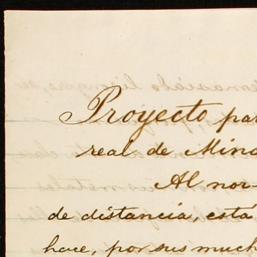 Proyecto par
real de Mina
Al nor-
de distancia, está
hace, por sus much